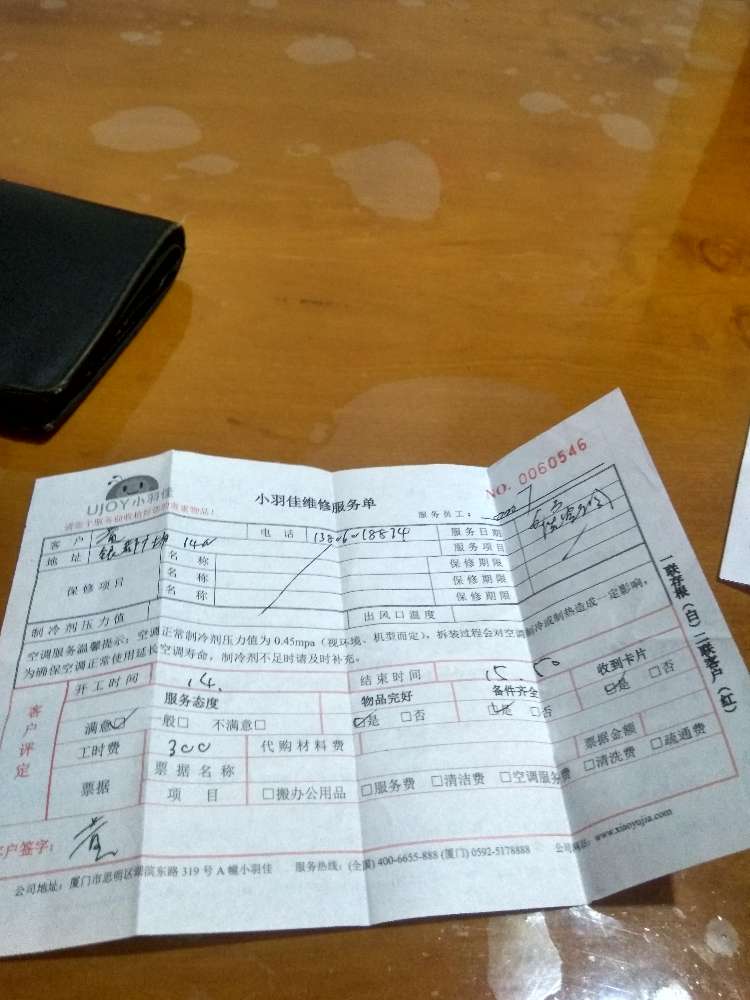 UJOY 小羽佳
小羽佳维修服务单
NO. 0060546
服务员工：
客户 电话 服务日期
地址 名称 服务项目
保修项目 名称 保修期限
名称 保修期限
保修期限
制冷剂压力值 出风口温度
空调服务温馨提示：空调正常制冷剂压力值为 0.45mpa（视环境、机型而定），拆装过程会对空调制冷或制热造成一定影响，
为确保空调正常使用延长空调寿命，制冷剂不足时请及时补充。
一联存根（白）二联客户（红）
客户评定
开工时间 14. 结束时间 15.50
服务态度 物品完好 备件齐全 收到卡片
满意☑ 一般□ 不满意□ ☑是 □否 ☑是 □否 ☑是 □否
工时费 300 代购材料费 票据金额
票据 票据名称 □服务费 □清洁费 □空调服务费 □清洗费 □疏通费
项目 □搬办公用品
客户签字：
公司地址：厦门市思明区湖滨东路 319 号 A 幢小羽佳 服务热线：(全国) 400-6655-888 (厦门) 0592-5178888 www.xiaoyujia.com